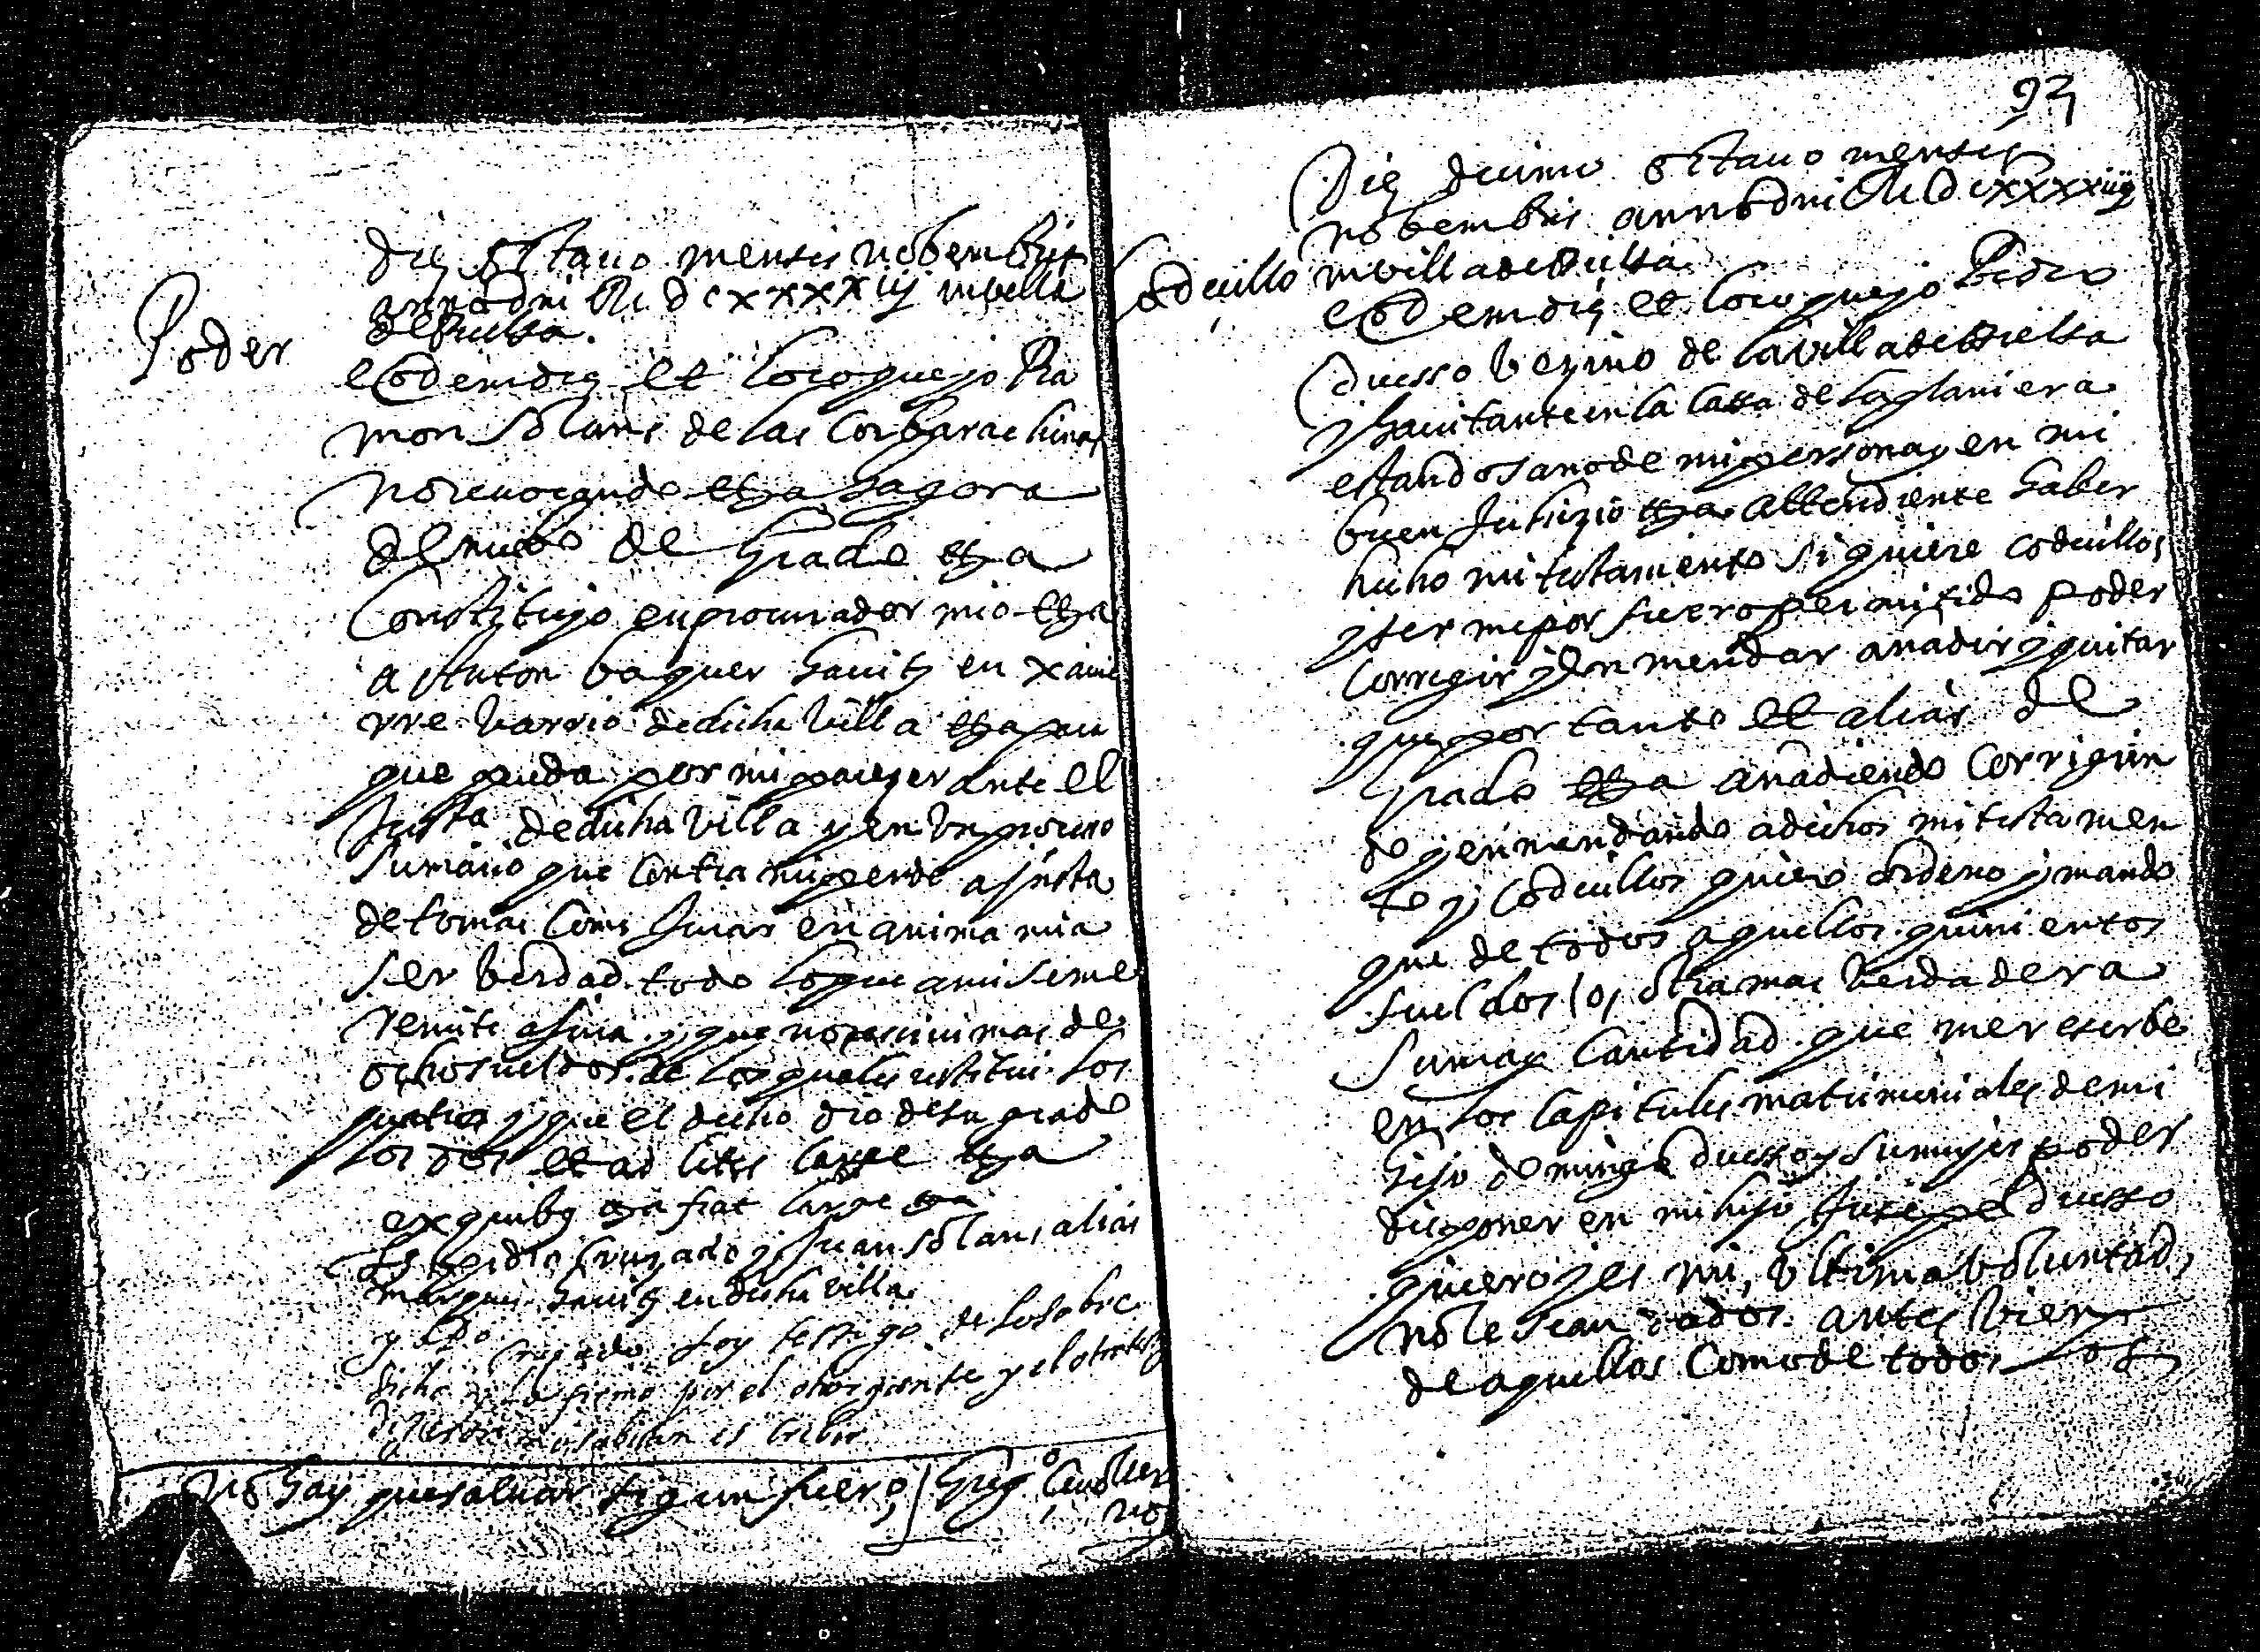 die octauo mensis nobembris
anno dni M dcxxxxiiij in villa
de Bielsa.
Poder
eodem die et loco que yo Ra
mon Solans de las Corbarachinas
no reuocando etza hagora
de nuebo de Grado etza
Constituyo en procurador mio etza
a Anton baquer hauite en xauie
rre barrio de dicha villa etza para
que pueda por mi parezer ante el
Justa de dicha villa y en un proceso
sumario que contra mi pende a insta
de tomas Coms Jurar en anima mia
ser berdad todo lo que a mi se me
remite a Jura y que no receui mas de
ocho sueldos de los quales restitui los
quatro y que el dicho dio de su grado
los dos et ad lites large etza
ex quibus etza fiat large etza
Ts Pedro Cruzado y Juan Solans alias
hauite en dicha villa
yo Po Cruzado soy testigo de lo sobre
dicho y la firmo por el otorgante y el otro testigo
que no sabian escribir
No hay que saluar segun fuero / Greg.o
no
93
Die decimo octauo mensis
nobembris anno dni M dcxxxxiiij
Codicillo in villa de Bielsa
eodem die et loco que yo Pedro
Duesso bezino de la villa de Bielsa
y hauitante en la Cassa de la planiera
estando sano de mi persona y en mi
buen Juhizio etza attendiente haber
hecho mi testamento si quiere codicillos
y ser me por fuero permitido poder
Corregir y Enmendar añadir y quitar
que por tanto et alias de
Grado etza añadiendo Corrigien
do y enmendando a dichos mi testamen
to y Codicillos quiero ordeno y mando
que de todos aquellos quinientos
sueldos lo, otra mas berdadera
suma y Cantidad que me reserbe
en los Capitules matrimoniales de mi
hijo domingo duesso y su mujer poder
disponer en mi hijo Jusepe duesso
quiero y es mi, ultima boluntad,
no le sean dados antes bien
de aquellos Como de todos los